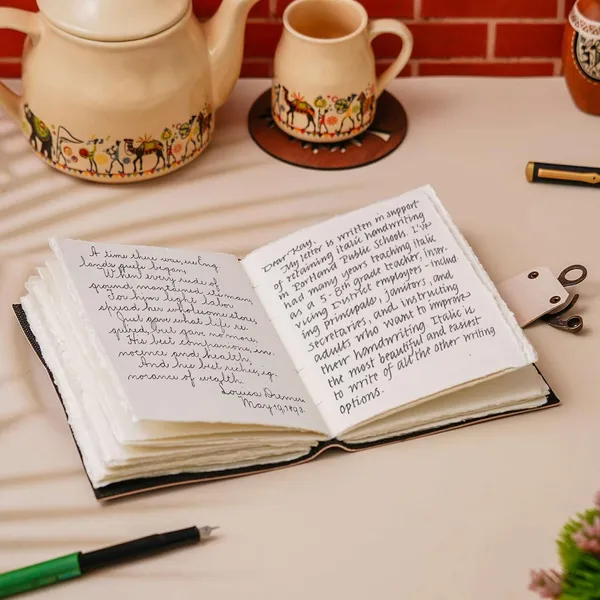 A time there was, ere Eng
lands griefs began,
When every rood of
ground maintained its man,
For him light labor
spread her wholesome store
Just gave what life re
quired but gave no more,
His best companions, inn
nocence and health,
And his best riches, ig
norance of wealth.
Louisa
May 19, 1893.
Dear Kay,
My letter is written in support
of retaining italic handwriting
in Portland Public Schools. I've
had many years teaching italic
as a 5-8th grade teacher, inser-
vicing District employees - includ
ing principals, janitors, and
secretaries, and instructing
adults who want to improve
their handwriting. Italic is
the most beautiful and easiest
to write of all the other writing
options.